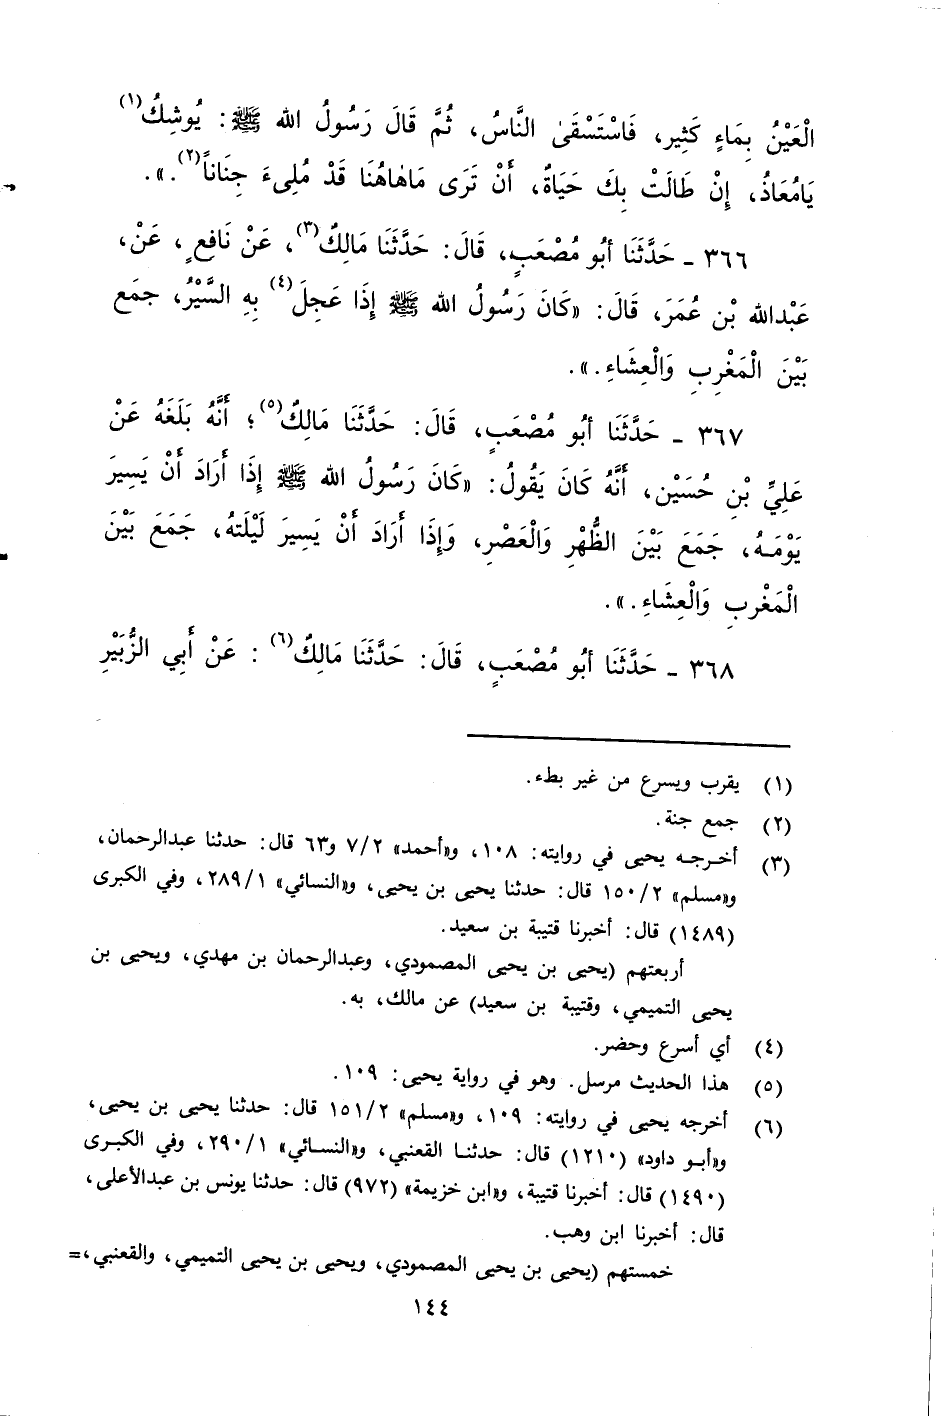 الْعَيْنُ بِمَاءٍ كَثِيرٍ، فَاسْتَسْقَىٰ النَّاسُ، ثُمَّ قَالَ رَسُولُ الله ﷺ: يُوشِكُ(١)
يَامُعَاذُ، إِنْ طَالَتْ بِكَ حَيَاةٌ، أَنْ تَرَى مَاهَاهُنَا قَدْ مُلِىءَ جِنَاناً(٢).».
٣٦٦ ـ حَدَّثَنَا أَبُو مُصْعَبٍ، قَالَ: حَدَّثَنَا مَالِكٌ(٣)، عَنْ نَافِعٍ، عَنْ،
عَبْدالله بْنِ عُمَرَ، قَالَ: «كَانَ رَسُولُ الله ﷺ إِذَا عَجِلَ(٤) بِهِ السَّيْرُ، جَمَع
بَيْنَ الْمَغْرِبِ وَالْعِشَاءِ.».
٣٦٧ ـ حَدَّثَنَا أَبُو مُصْعَبٍ، قَالَ: حَدَّثَنَا مَالِكٌ(٥)؛ أَنَّهُ بَلَغَهُ عَنْ
عَلِيِّ بْنِ حُسَيْنٍ، أَنَّهُ كَانَ يَقُولُ: «كَانَ رَسُولُ الله ﷺ إِذَا أَرَادَ أَنْ يَسِيرَ
يَوْمَهُ، جَمَعَ بَيْنَ الظُّهْرِ وَالْعَصْرِ، وَإِذَا أَرَادَ أَنْ يَسِيرَ لَيْلَتَهُ، جَمَعَ بَيْنَ
الْمَغْرِبِ وَالْعِشَاءِ.».
٣٦٨ ـ حَدَّثَنَا أَبُو مُصْعَبٍ، قَالَ: حَدَّثَنَا مَالِكٌ(٦) : عَنْ أَبِي الزُّبَيْرِ
(١) يقرب ويسرع من غير بطء.
(٢) جمع جنة.
(٣) أخرجه يحيى في روايته: ١٠٨، و«أحمد» ٧/٢ و٦٣ قال: حدثنا عبدالرحمان،
و«مسلم» ١٥٠/٢ قال: حدثنا يحيى بن يحيى، و«النسائي» ٢٨٩/١، وفي الكبرى
(١٤٨٩) قال: أخبرنا قتيبة بن سعيد.
أربعتهم (يحيى بن يحيى المصمودي، وعبدالرحمان بن مهدي، ويحيى بن
يحيى التميمي، وقتيبة بن سعيد) عن مالك، به.
(٤) أي أسرع وحضر.
(٥) هذا الحديث مرسل. وهو في رواية يحيى: ١٠٩.
(٦) أخرجه يحيى في روايته: ١٠٩، و«مسلم» ١٥١/٢ قال: حدثنا يحيى بن يحيى،
و«أبو داود» (١٢١٠) قال: حدثنا القعنبي، و«النسائي» ٢٩٠/١، وفي الكبرى
(١٤٩٠) قال: أخبرنا قتيبة، و«ابن خزيمة» (٩٧٢) قال: حدثنا يونس بن عبدالأعلى،
قال: أخبرنا ابن وهب.
خمستهم (يحيى بن يحيى المصمودي، ويحيى بن يحيى التميمي، والقعنبي،=
١٤٤